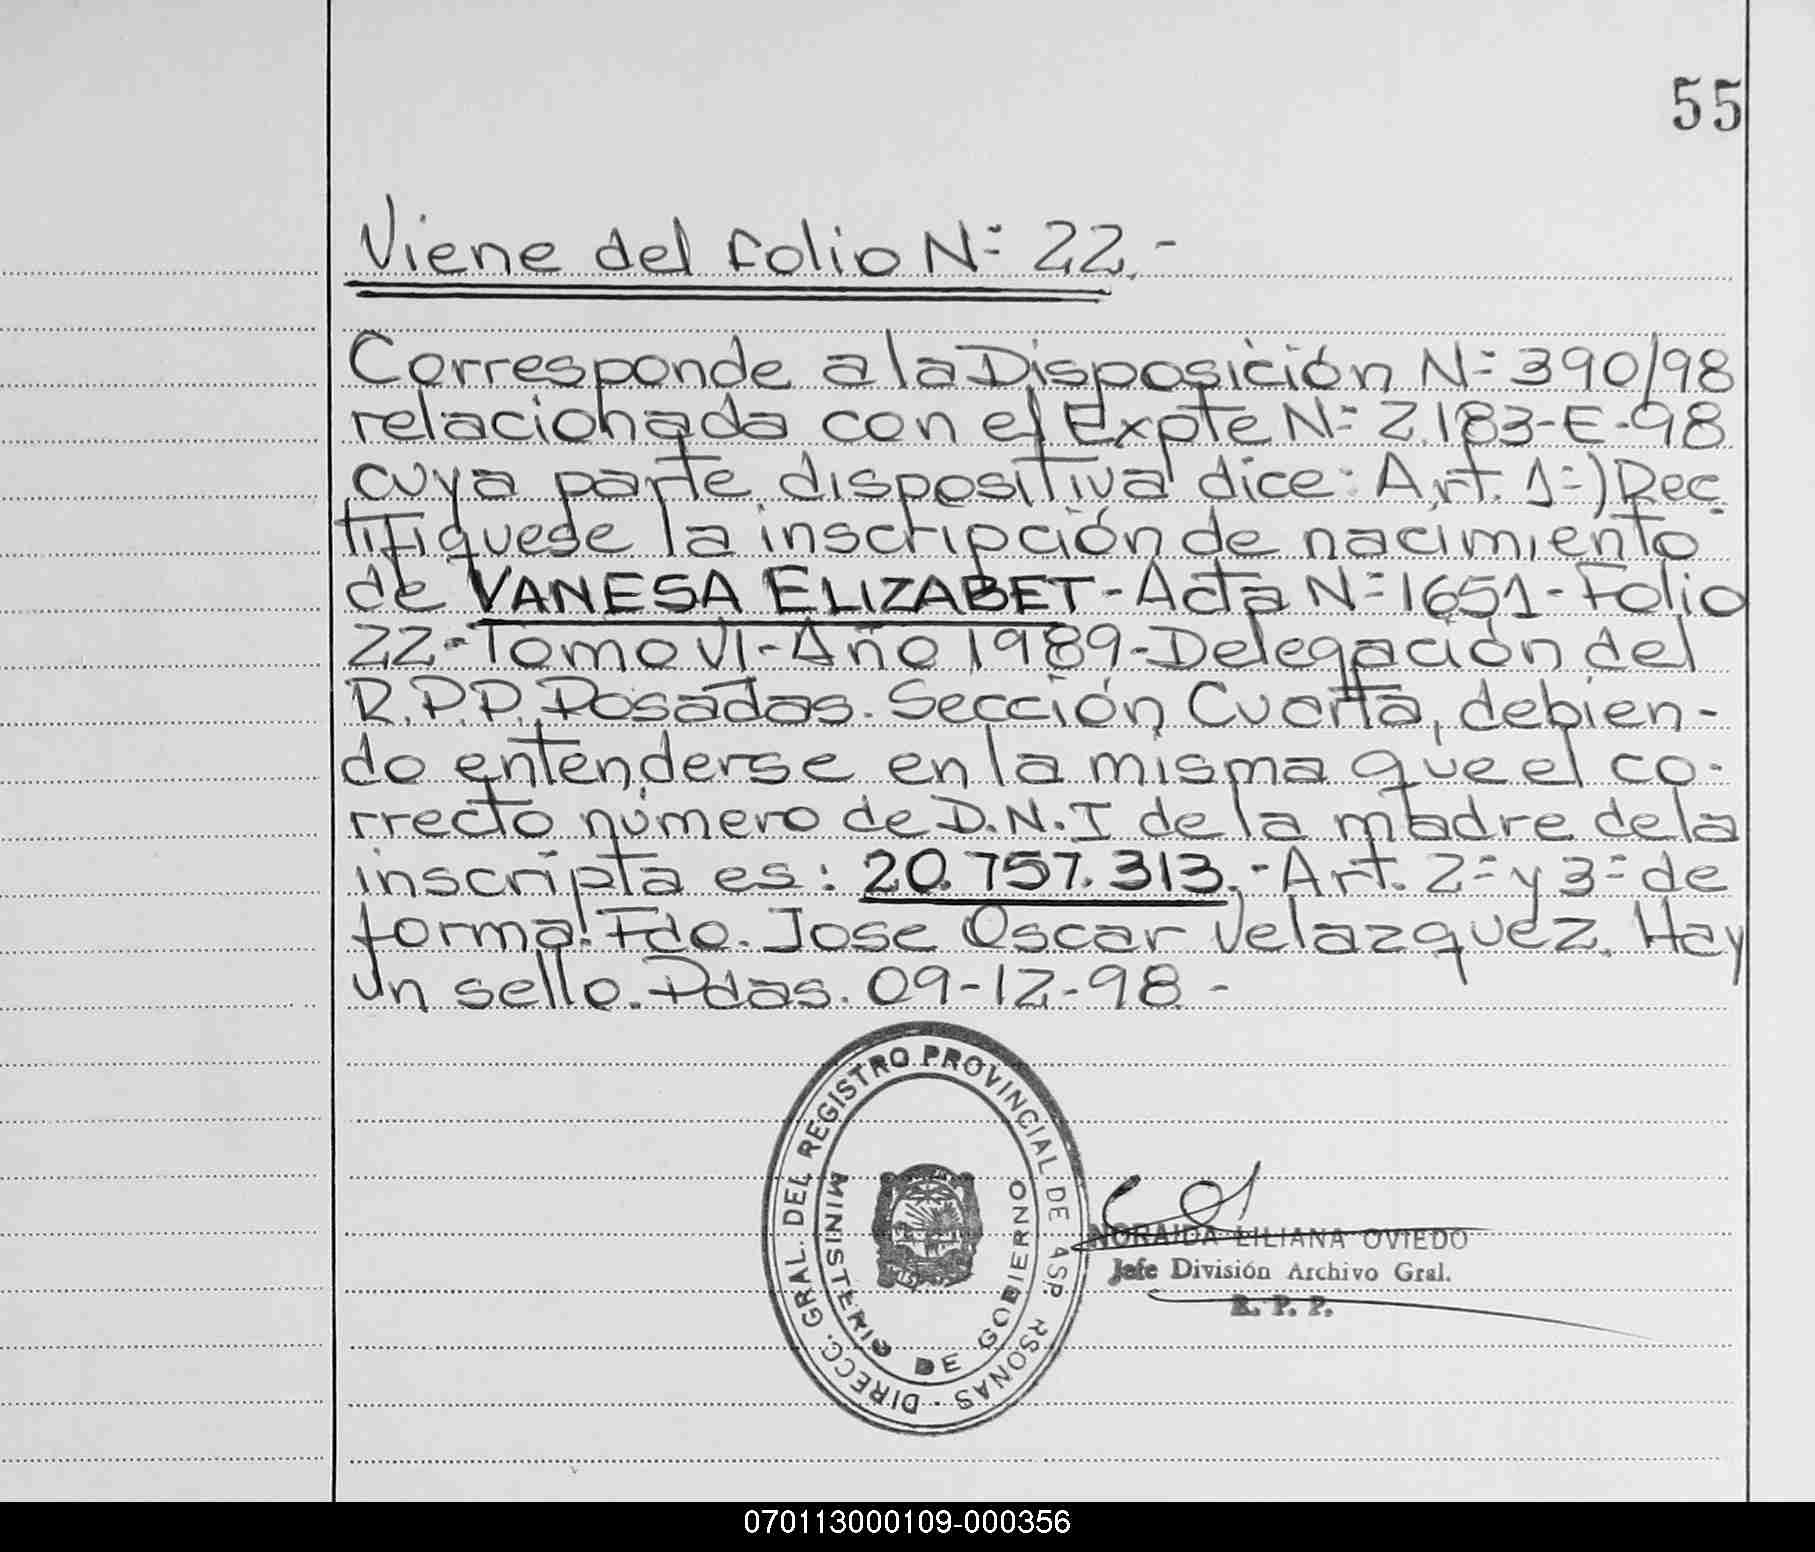 55
Viene del folio Nº 22.-
Corresponde a la Disposición Nº 390/98
relacionada con el Expte Nº 2.183-E-98
cuya parte dispositiva dice: Art. 1º) Rec
tifiquese la inscripción de nacimiento
de VANESA ELIZABET - Acta Nº 1651 - Folio
22 - Tomo VI - Año 1989 - Delegación del
R.P.P. Posadas. Sección Cuarta, debien-
do entenderse en la misma que el co-
rrecto número de D.N.I de la madre de la
inscripta es: 20.757.313.- Art. 2º y 3º de
forma. Fdo. Jose Oscar Velazquez. Hay
un sello. Pdas. 09-12-98.-
DIRECC. GRAL. DEL REGISTRO PROVINCIAL DE LAS P RSONAS
MINISTERIO DE GOBIERNO
NORAIDA LILIANA OVIEDO
Jefe División Archivo Gral.
R. P. P.
070113000109-000356